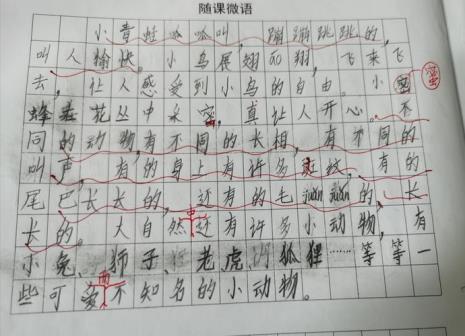 随课微语
小青蛙呱呱叫，蹦蹦跳跳的，
叫人愉快。小鸟展翅而翔，飞来飞
去，让人感受到小鸟的自由。小
蜜
蜂在花丛中采蜜，真让人开心。不
同的动物，有不同的长相，有不同的
叫声，有的身上有许多斑纹，有的
尾巴长长的，还有的毛juǎnjuǎn的，长
长的。大自然中还有许多小动物，有
小兔、狮子、老虎、狐狸……等等一
些可爱而不知名的小动物。